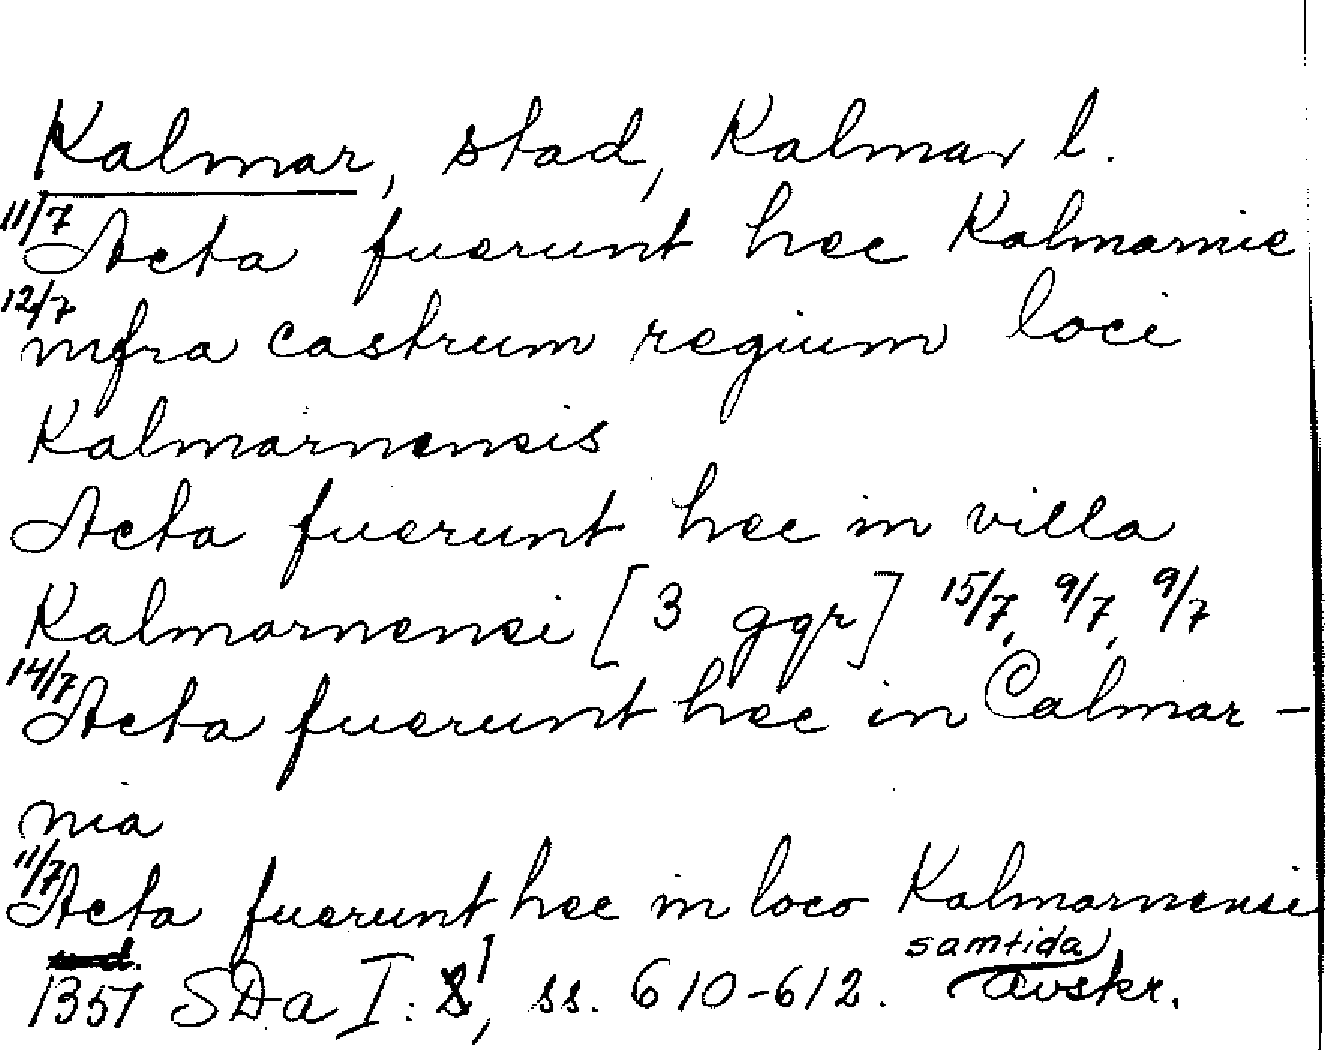 Kalmar, stad, Kalmar l.
11/7 Acta fuerunt hec Kalmarnie
12/7 infra castrum regium loci
Kalmarnensis
Acta fuerunt hec in villa
Kalmarnensi [3 ggr] 15/7, 9/7, 9/7
14/7 Acta fuerunt hec in Calmar-
nia
11/7 Acta fuerunt hec in loco Kalmarnensi
samtida
1351 SDa I: 1, ss. 610-612. avskr.